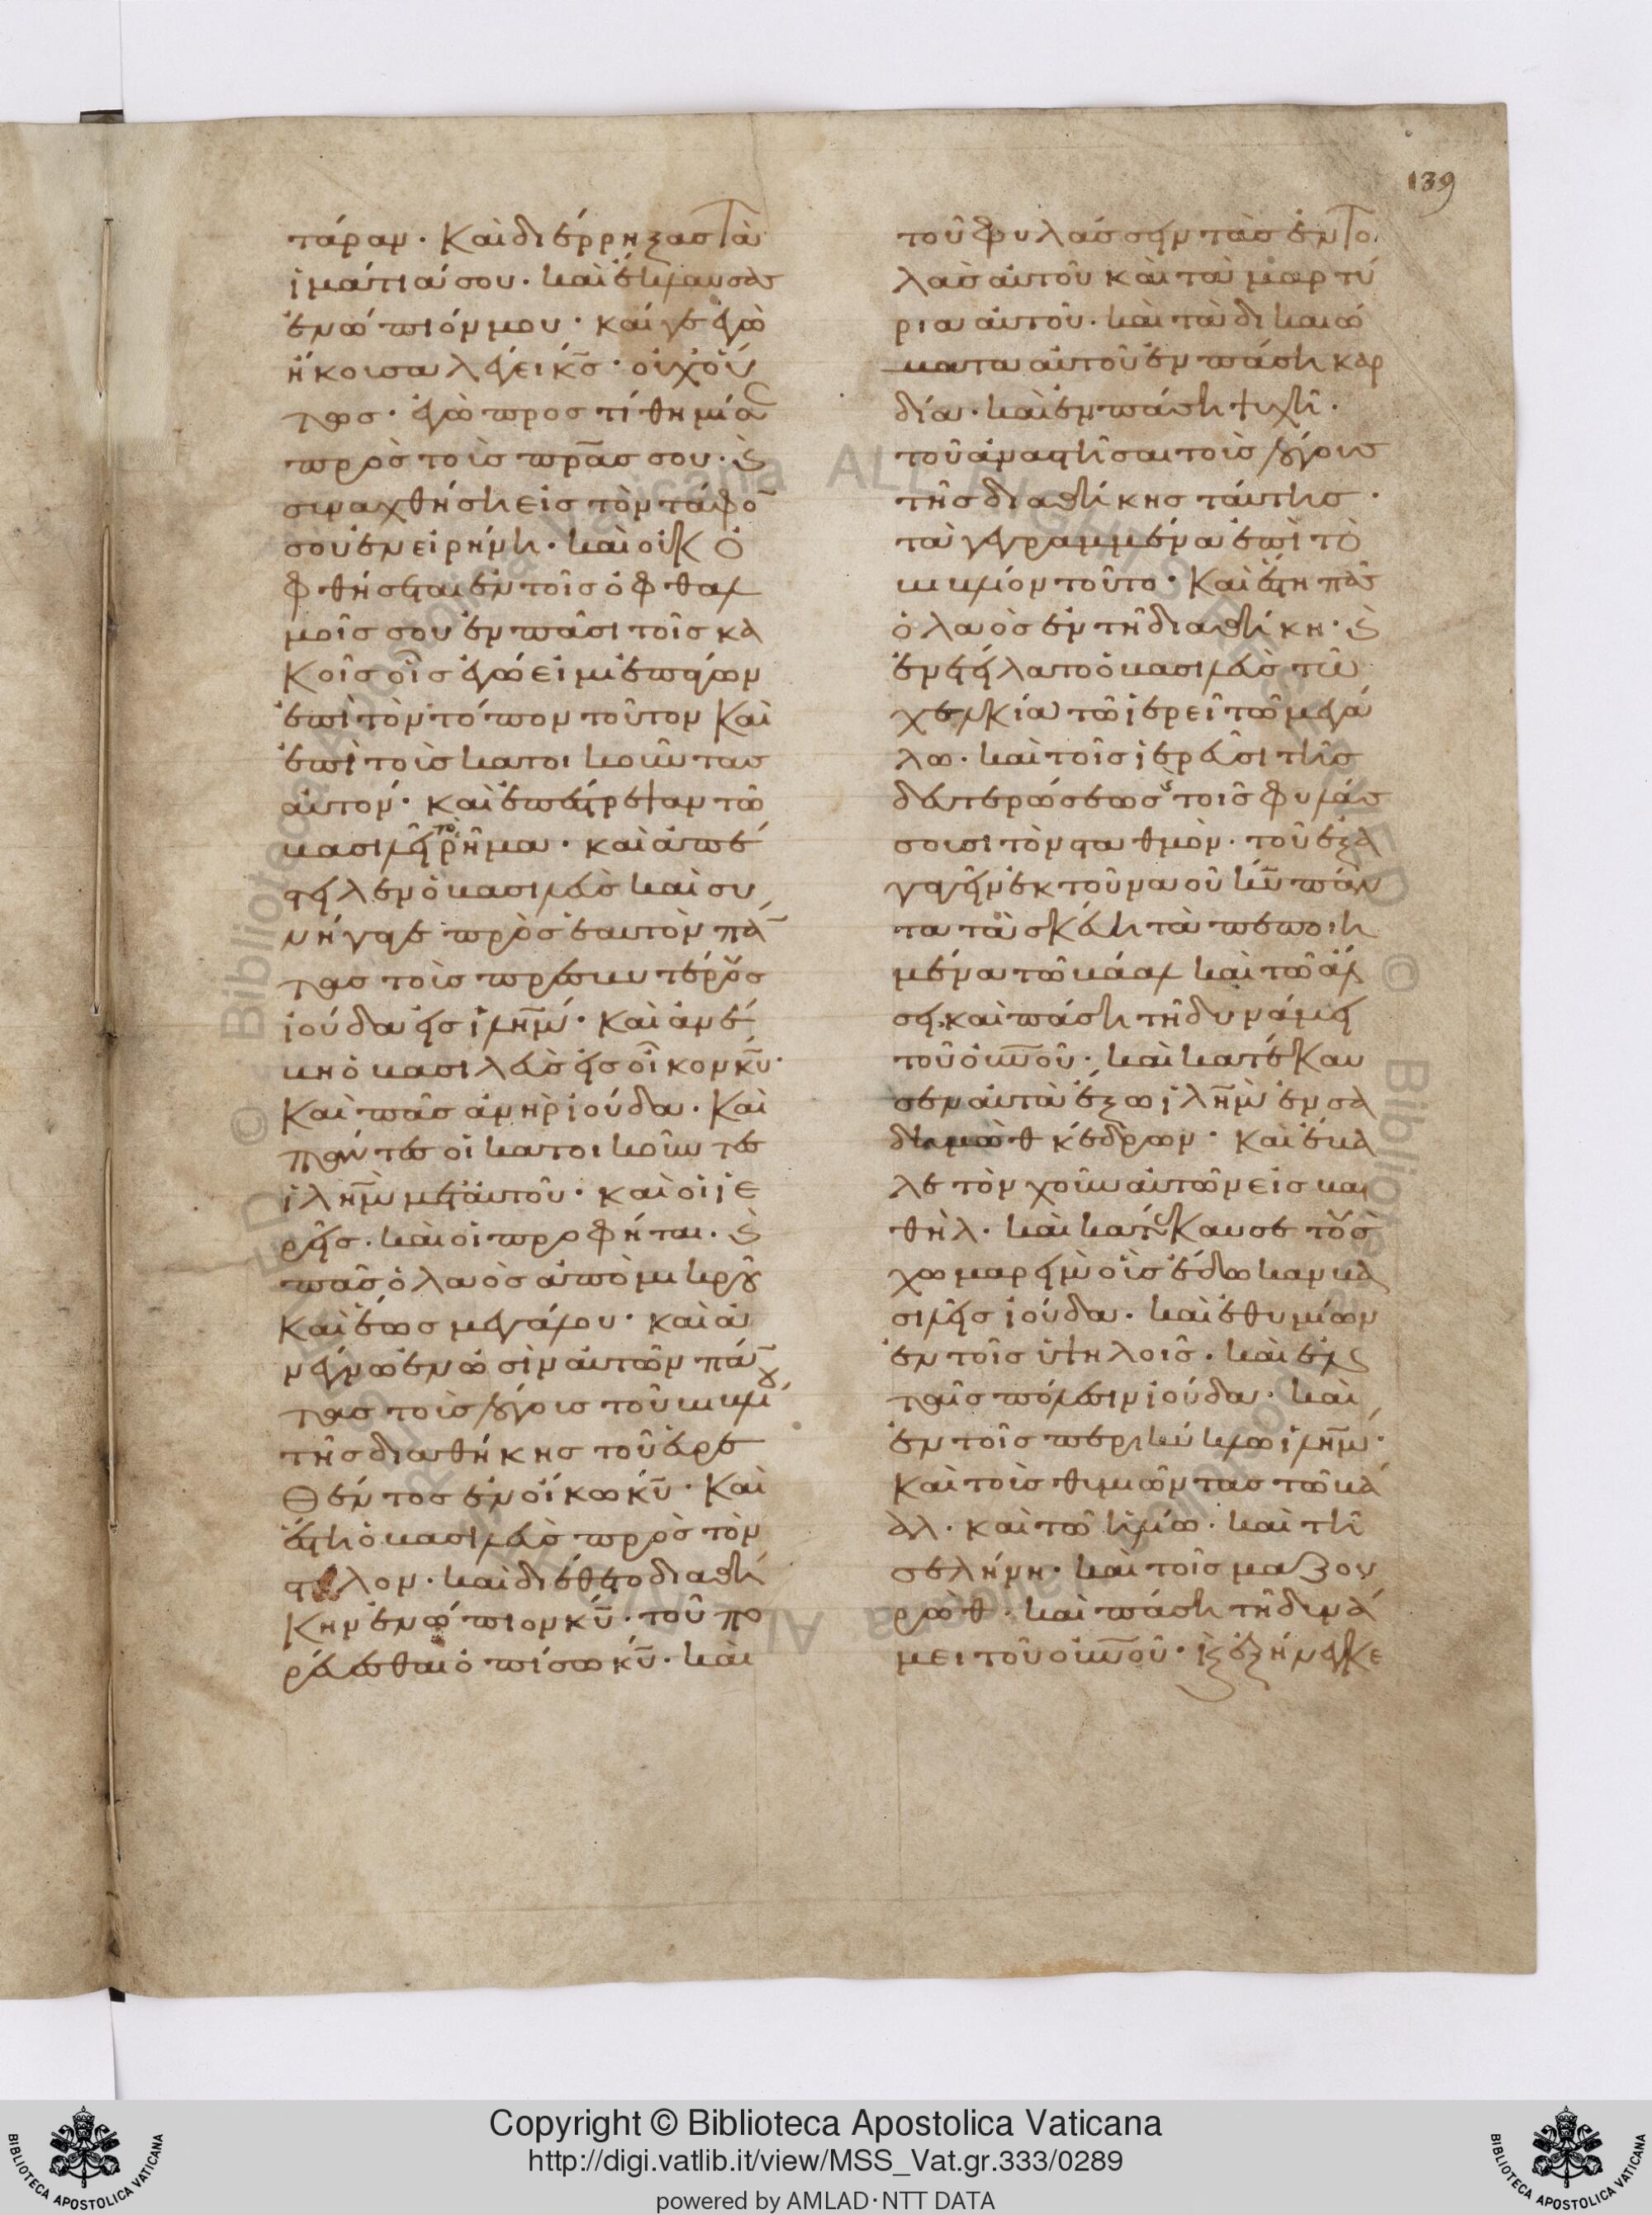 139
τάραν· Καὶ διέρρηξας τὰ
ἱμάτιά σου· καὶ ἔκλαυσας
ἐνώπιόν μου· καί γε ἐγὼ
ἤκουσα λέγει κ̅ς̅· οὐχ οὕ
τως· ἐγὼ προστίθημί σε
πρὸς τοὺς π̅ρ̅α̅ς σου· ϗ
συναχθήσῃ εἰς τὸν τάφο̅
σου ἐν εἰρήνῃ· καὶ οὐκ ὀ
φθήσεται ἐν τοῖς ὀφθαλ
μοῖς σου ἐν πᾶσι τοῖς κα
κοῖς οἷς ἐγώ εἰμι ἐπάγων
ἐπὶ τὸν τόπον τοῦτον Καὶ
ἐπὶ τοὺς κατοικοῦντας
αὐτόν· καὶ ἐπέστρεψαν τῶ
βασιλεῖ τὸ ῥῆμα· καὶ ἀπέ
στειλεν ὁ βασιλεὺς καὶ συ
νήγαγε πρὸς ἑαυτὸν πά̅
τας τοὺς πρεσβυτέρους
ἰούδα εἰς ἰ̅λ̅η̅μ· καὶ ἀνέ
βη ὁ βασιλεὺς εἰς οἶκον κ̅υ̅·
Καὶ πᾶς ἀνὴρ ἰούδα· Καὶ
πάντες οἱ κατοικοῦντες
ἰ̅λ̅η̅μ μετ' αὐτοῦ· καὶ οἱ ἱε
ρεῖς· καὶ οἱ προφῆται· ϗ
πᾶς ὁ λαὸς ἀπὸ μικροῦ
καὶ ἕως μεγάλου· καὶ ἀ
νέγνω ἐν ὠσὶν αὐτῶν πά̅
τας τοὺς λόγους τοῦ βιβλίου
τῆς διαθήκης τοῦ εὑρε
θέντος ἐν οἴκω κ̅υ̅· Καὶ
ἔστη ὁ βασιλεὺς πρὸς τὸν
στύλον· καὶ διέθετο διαθή
κην ἐνώπιον κ̅υ̅· τοῦ πο
ρεύεσθαι ὀπίσω κ̅υ̅· καὶ
τοῦ φυλάσσειν τὰς ἐντο
λὰς αὐτοῦ καὶ τὰ μαρτύ
ρια αὐτοῦ· καὶ τὰ δικαιώ
ματα αὐτοῦ ἐν πάσῃ καρ
δία· καὶ ἐν πάσῃ ψυχῆ·
τοῦ ἀναστῆσαι τοὺς λόγους
τῆς διαθήκης ταύτης·
τὰ γεγραμμένα ἐπὶ τὸ
βιβλίον τοῦτο· Καὶ ἔστη πᾶς
ὁ λαὸς ἐν τῆ διαθήκη· ϗ
ἐνετείλατο ὁ βασιλεὺς τῶ
χελκία τῶ ἱερεῖ τῶ μεγά
λω· καὶ τοῖς ἱερεῦσι τῆς
δευτερώσεως ϗ τοῖς φυλάσ
σουσι τὸν σταθμὸν· τοῦ ἐξα
γαγεῖν ἐκ τοῦ ναοῦ κ̅υ̅ πάν
τα τὰ σκεύη τὰ πεποιη
μένα τῶ βάαλ καὶ τῶ ἄλ
σει· καὶ πάση τῆ δυνάμει
τοῦ ο̅υ̅ν̅οῦ· καὶ κατέκαυ
σεν αὐτὰ ἔξω ἰ̅λ̅η̅μ ἐν σα
δημὼθ κέδρων· καὶ ἔβα
λε τὸν χοῦν αὐτῶν εἰς βαι
θήλ· καὶ κατέκαυσε τοὺς
χωμαρεὶμ οὓς ἔδωκαν βα
σιλεῖς ἰούδα· καὶ ἐθυμίων
ἐν τοῖς ὑψηλοῖς· καὶ ἐν
ταῖς πόλεσιν ἰούδα· καὶ
ἐν τοῖς περικύκλω ἰ̅λ̅η̅μ·
Καὶ τοὺς θυμιῶντας τῶ βά
αλ· καὶ τῶ ἡλίω· καὶ τῆ
σελήνη· καὶ τοῖς μαζου
ρὼθ· καὶ πάσῃ τῆ δυνά
μει τοῦ ο̅υ̅ν̅οῦ· ϗ ἐξήνεγκε
Copyright © Biblioteca Apostolica Vaticana
http://digi.vatlib.it/view/MSS_Vat.gr.333/0289
powered by AMLAD·NTT DATA
BIBLIOTECA APOSTOLICA VATICANA
BIBLIOTECA APOSTOLICA VATICANA